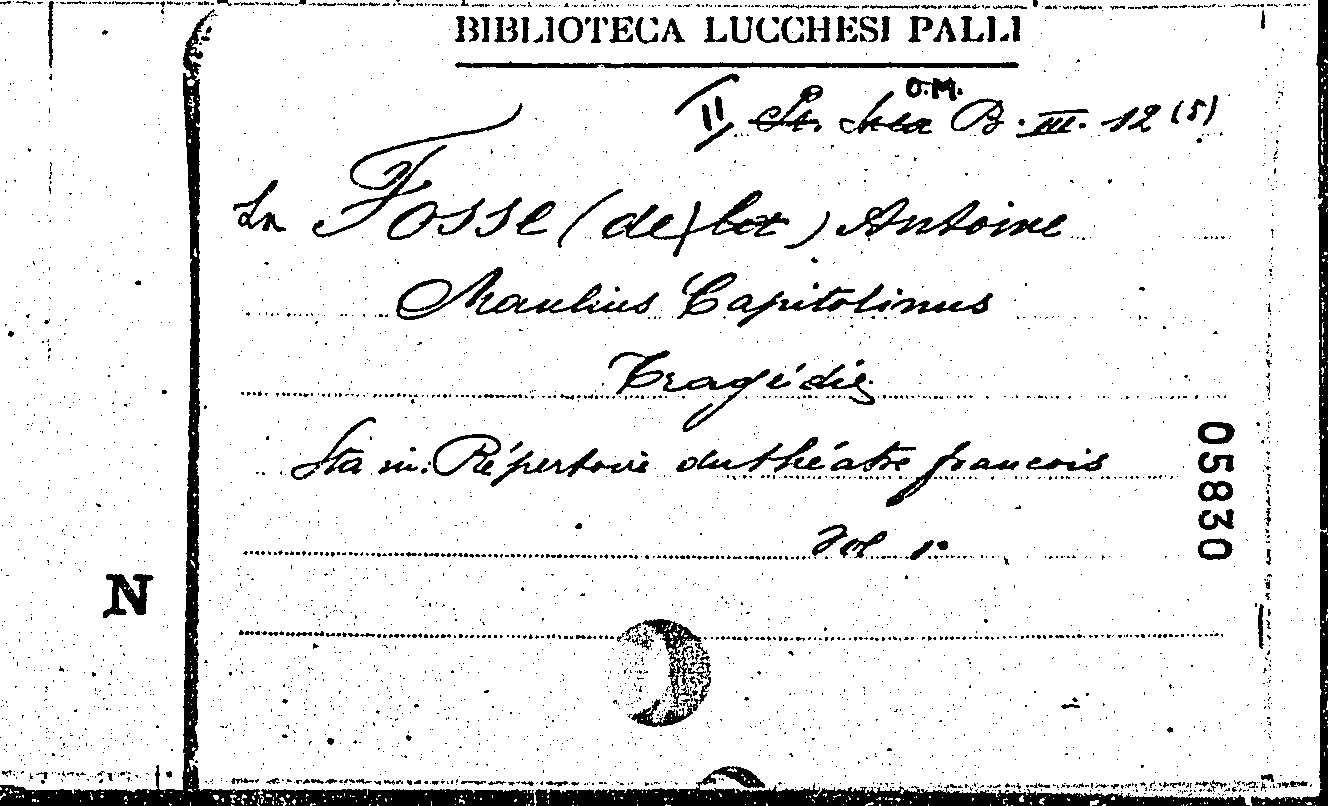 BIBLIOTECA LUCCHESI PALLI
O.M.
II B. III. 12 (5)
La Fosse (de) Antoine
Manlius Capitolinus
Tragédie
Sta in: Répertoire du théatre francois
Vol 1.
05830
N